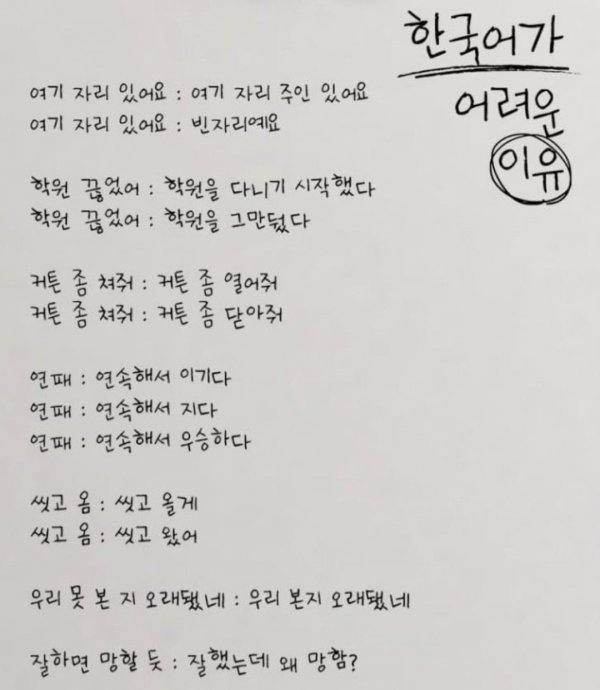 한국어가
어려운
이유
여기 자리 있어요 : 여기 자리 주인 있어요
여기 자리 있어요 : 빈자리예요
학원 끊었어 : 학원을 다니기 시작했다
학원 끊었어 : 학원을 그만뒀다
커튼 좀 쳐줘 : 커튼 좀 열어줘
커튼 좀 쳐줘 : 커튼 좀 닫아줘
연패 : 연속해서 이기다
연패 : 연속해서 지다
연패 : 연속해서 우승하다
씻고 옴 : 씻고 올게
씻고 옴 : 씻고 왔어
우리 못 본 지 오래됐네 : 우리 본지 오래됐네
잘하면 망할 듯 : 잘했는데 왜 망함?